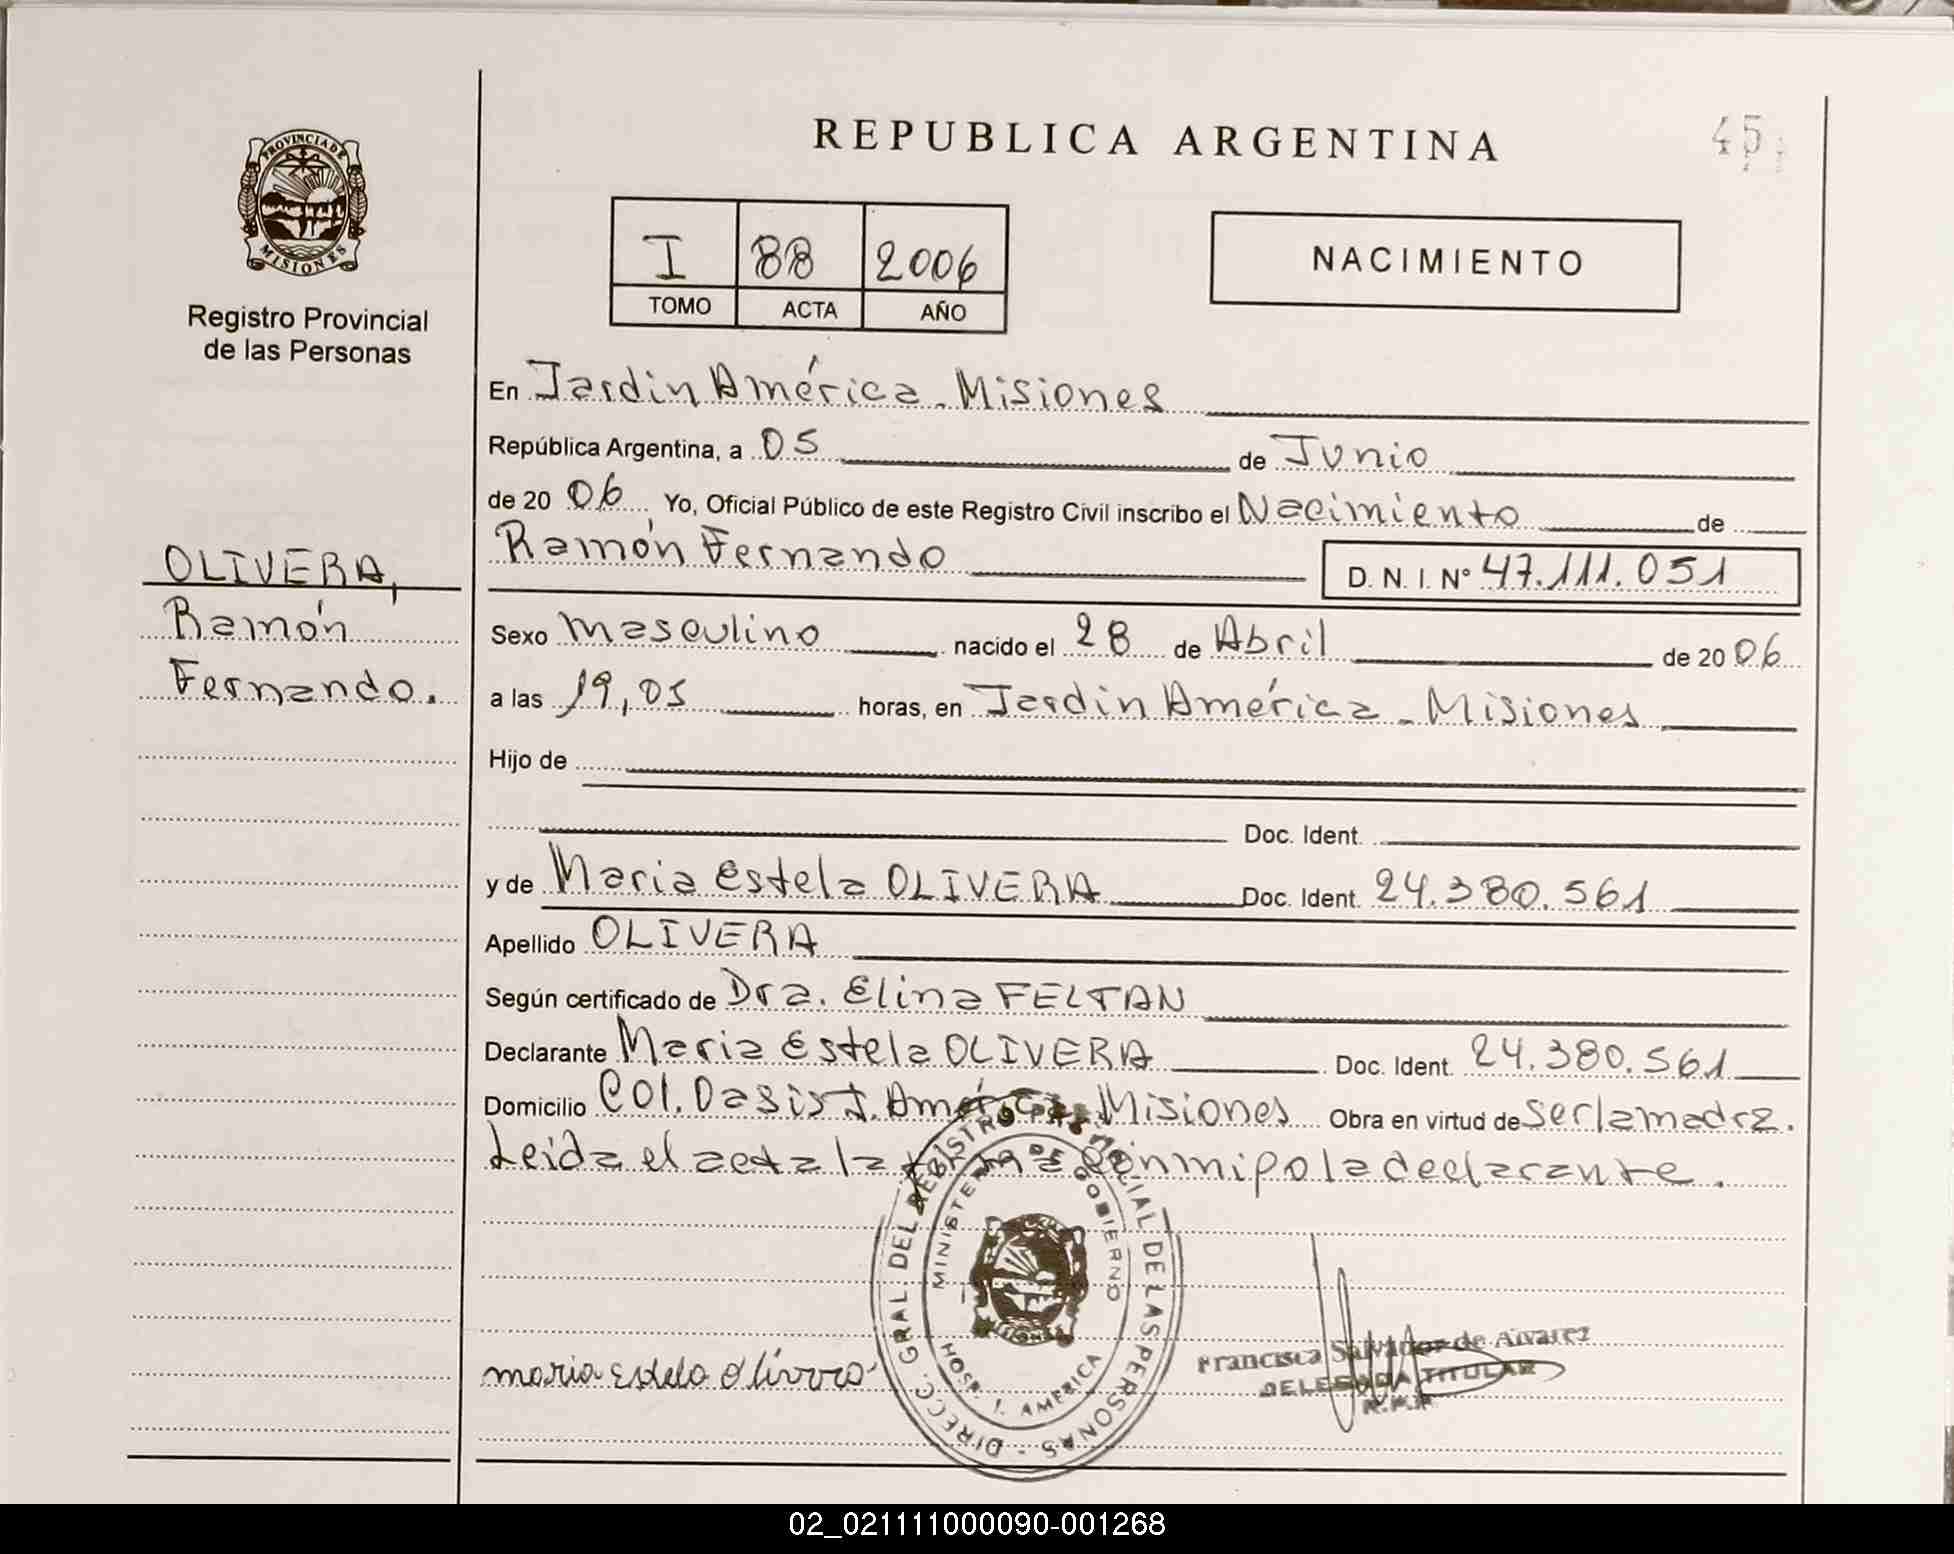 REPUBLICA ARGENTINA
45
PROVINCIA DE
MISIONES
Registro Provincial
de las Personas
I 88 2006
TOMO ACTA AÑO
NACIMIENTO
En Jardin América - Misiones
República Argentina, a 05 de Junio
de 20 06 Yo, Oficial Público de este Registro Civil inscribo el Nacimiento de
Ramón Fernando D. N. I. Nº 47.111.051
OLIVERA,
Ramón
Fernando.
Sexo Masculino nacido el 28 de Abril de 20 06
a las 19,05 horas, en Jardin América - Misiones
Hijo de
Doc. Ident.
y de Maria Estela OLIVERA Doc. Ident. 24.380.561
Apellido OLIVERA
Según certificado de Dra. Elina FELTAN
Declarante Maria Estela OLIVERA Doc. Ident. 24.380.561
Domicilio Col. Oasis J. América Misiones Obra en virtud de ser la madre.
Leida el acta la firma conmipo la declarante.
DIRECC. GRAL. DEL REGISTRO PROVINCIAL DE LAS PERSONAS -
MINISTERIO DE GOBIERNO
HOSP. J. AMERICA
maria Estela Olivera
Francisca Salvador de Alvarez
DELEGADA TITULAR
R.P.P.
02_021111000090-001268